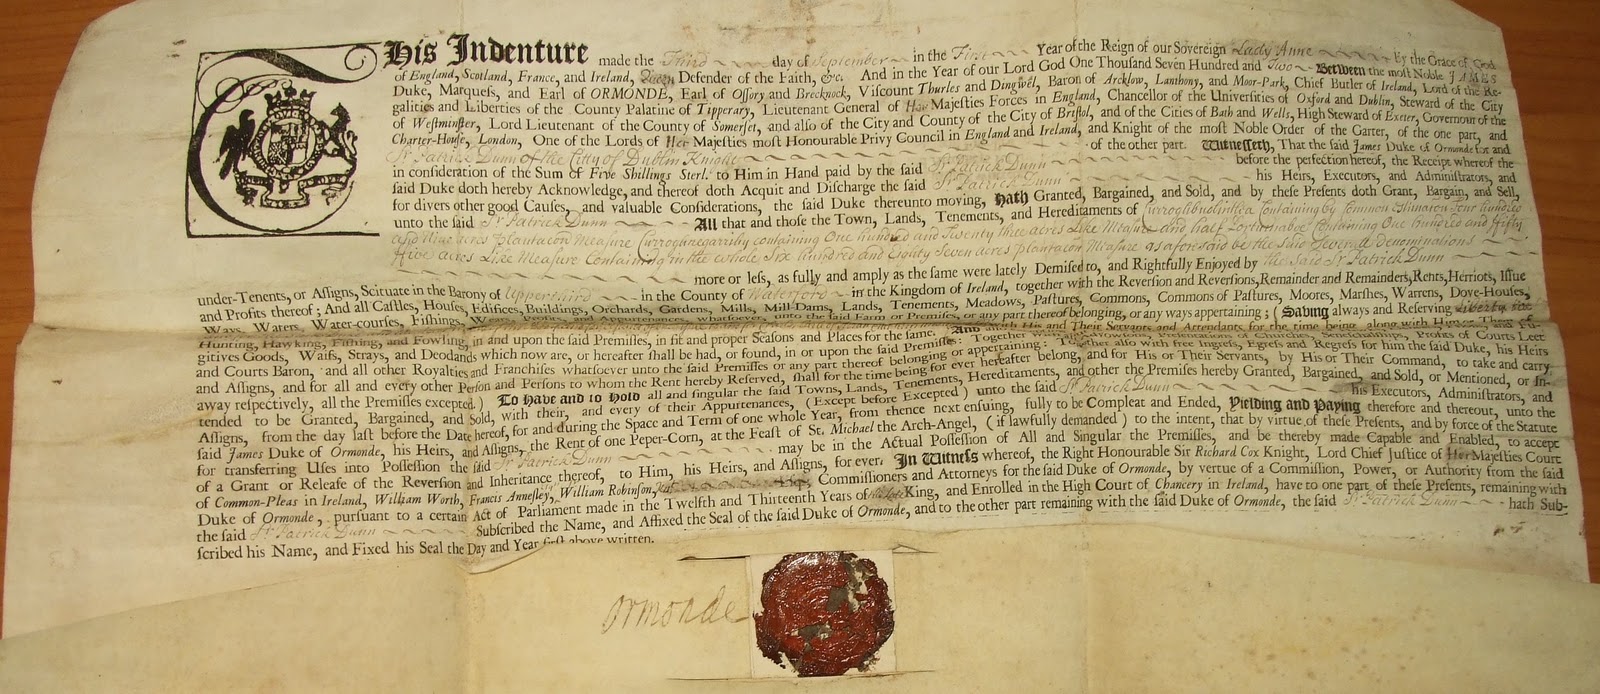 THis Indenture made the Third day of September in the First Year of the Reign of our Sovereign Lady Anne by the Grace of God
of England, Scotland, France, and Ireland, Queen Defender of the Faith, &c. And in the Year of our Lord God One Thousand Seven Hundred and Two Between the most Noble JAMES
Duke, Marquess, and Earl of ORMONDE, Earl of Ossory and Brecknock, Viscount Thurles and Dingwel, Baron of Arcklow, Lanthony, and Moor-Park, Chief Butler of Ireland, Lord of the Re-
galities and Liberties of the County Palatine of Tipperary, Lieutenant General of Her Majesties Forces in England, Chancellor of the Universities of Oxford and Dublin, Steward of the City
of Westminster, Lord Lieutenant of the County of Somerset, and also of the City and County of the City of Bristol, and of the Cities of Bath and Wells, High Steward of Exeter, Governour of the
Charter-House, London, One of the Lords of Her Majesties most Honourable Privy Council in England and Ireland, and Knight of the most Noble Order of the Garter, of the one part, and
Sr Patrick Dunn of the Citty of Dublin Knight of the other part. Witnesseth, That the said James Duke of Ormonde for and
in consideration of the Sum of Five Shillings Sterl. to Him in Hand paid by the said Sr Patrick Dunn before the perfection hereof, the Receipt whereof the
said Duke doth hereby Acknowledge, and thereof doth Acquit and Discharge the said Sr Patrick Dunn his Heirs, Executors, and Administrators, and
for divers other good Causes, and valuable Considerations, the said Duke thereunto moving, Hath Granted, Bargained, and Sold, and by these Presents doth Grant, Bargain, and Sell,
unto the said Sr Patrick Dunn All that and those the Town, Lands, Tenements, and Hereditaments of Containing by Common Estimation four hundred
and Nine acres plantacon Measure Curroghnegarriby containing One hundred and Twenty three acres Like Measure and half Containing One hundred and fifty
ffive acres Like Measure Containing in the whole Six hundred and Eighty Seven acres plantacon Measure as aforesaid be the said Severall denominations
more or less, as fully and amply as the same were lately Demised to, and Rightfully Enjoyed by the said Sr Patrick Dunn
under-Tenents, or Assigns, Scituate in the Barony of Upperthird in the County of Waterford in the Kingdom of Ireland, together with the Reversion and Reversions, Remainder and Remainders, Rents, Herriots, Issue
and Profits thereof; And all Castles, Houses, Edifices, Buildings, Orchards, Gardens, Mills, Mill-Dams, Lands, Tenements, Meadows, Pastures, Commons, Commons of Pastures, Moores, Marshes, Warrens, Dove-Houses,
Ways, Waters, Water-courses, Fishings, and Appurtenances whatsoever, unto the said Farm or Premises, or any part thereof belonging, or any ways appertaining; (Saving always and Reserving
Hunting, Hawking, Fishing, and Fowling, in and upon the said Premisses, in fit and proper Seasons and Places for the same. Profits of Courts Leet
and Courts Baron, and all other Royalties and Franchises whatsoever unto the said Premisses or any part thereof belonging or appertaining: Together also with free Ingress, Egress and Regress for him the said Duke, his Heirs
and Assigns, and for all and every other Person and Persons to whom the Rent hereby Reserved, shall for the time being for ever hereafter belong, and for His or Their Servants, by His or Their Command, to take and carry
away respectively, all the Premisses excepted.) To Have and to Hold all and singular the said Towns, Lands, Tenements, Hereditaments, and other the Premises hereby Granted, Bargained, and Sold, or Mentioned, or In-
tended to be Granted, Bargained, and Sold, with their, and every of their Appurtenances, (Except before Excepted) unto the said Sr Patrick Dunn his Executors, Administrators, and
Assigns, from the day last before the Date hereof, for and during the Space and Term of one whole Year, from thence next ensuing, fully to be Compleat and Ended, Yielding and Paying therefore and thereout, unto the
said James Duke of Ormonde, his Heirs, and Assigns, the Rent of one Peper-Corn, at the Feast of St. Michael the Arch-Angel, (if lawfully demanded) to the intent, that by virtue of these Presents, and by force of the Statute
for transferring Uses into Possession the said Sr Patrick Dunn may be in the Actual Possession of All and Singular the Premisses, and be thereby made Capable and Enabled, to accept
of a Grant or Release of the Reversion and Inheritance thereof, to Him, his Heirs, and Assigns, for ever. In Witness whereof, the Right Honourable Sir Richard Cox Knight, Lord Chief Justice of Her Majesties Court
of Common-Pleas in Ireland, William Worth, Francis Annesley, William Robinson, Commissioners and Attorneys for the said Duke of Ormonde, by vertue of a Commission, Power, or Authority from the said
Duke of Ormonde, pursuant to a certain Act of Parliament made in the Twelfth and Thirteenth Years of King, and Enrolled in the High Court of Chancery in Ireland, have to one part of these Presents, remaining with
the said Sr Patrick Dunn Subscribed the Name, and Affixed the Seal of the said Duke of Ormonde, and to the other part remaining with the said Duke of Ormonde, the said Sr Patrick Dunn hath Sub-
scribed his Name, and Fixed his Seal the Day and Year first above written.
Ormonde